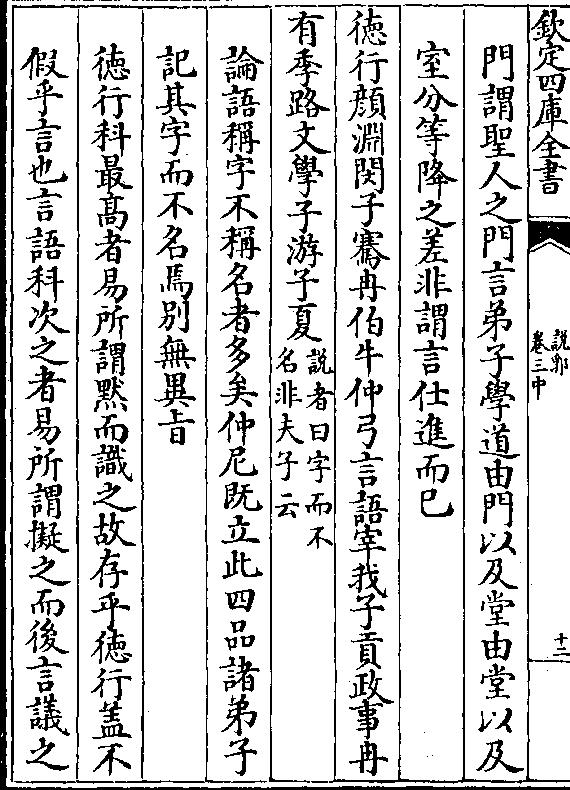 欽定四庫全書
說郛
卷三中
十二
門謂聖人之門言弟子學道由門以及堂由堂以及
室分等降之差非謂言仕進而已
徳行顔淵閔子騫冉伯牛仲弓言語宰我子貢政事冉
有季路文學子游子夏說者曰字而不名非夫子云
論語稱字不稱名者多矣仲尼既立此四品諸弟子
記其字而不名焉別無異㫖
徳行科最髙者易所謂黙而識之故存乎徳行盖不
假乎言也言語科次之者易所謂擬之而後言議之